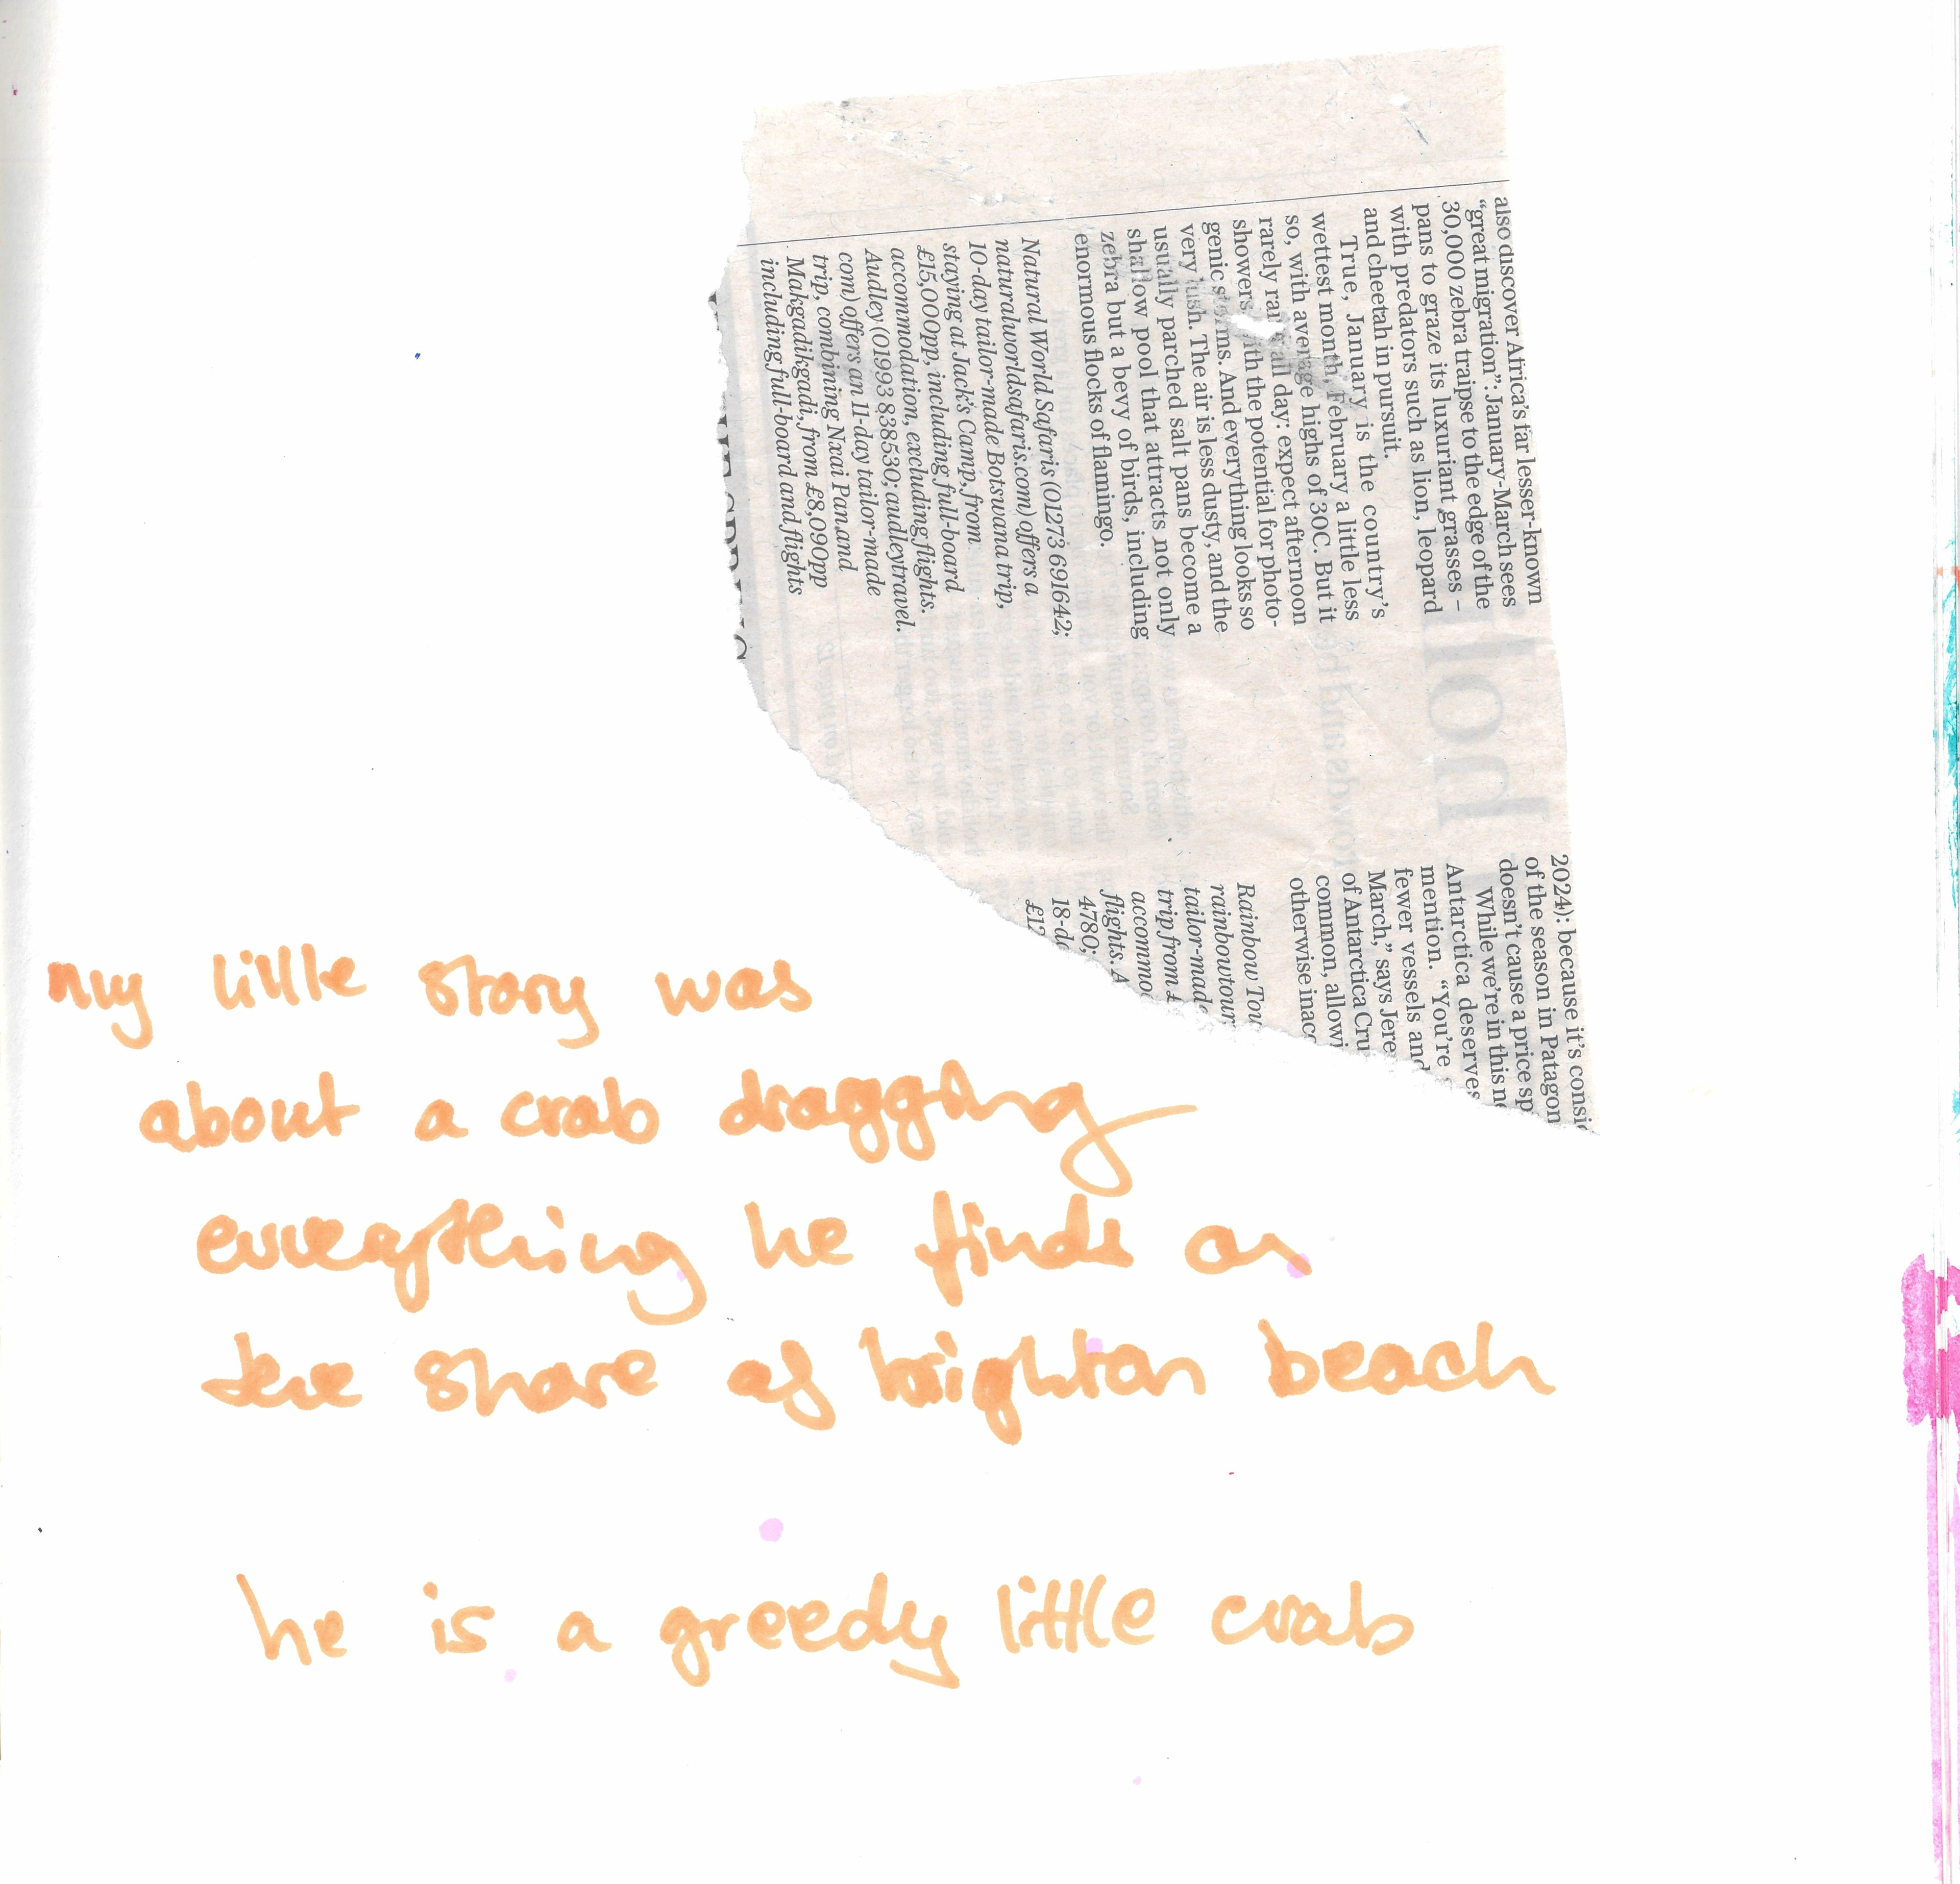 also discover Africa's far lesser-known
"great migration": January-March sees
30,000 zebra traipse to the edge of the
pans to graze its luxuriant grasses –
with predators such as lion, leopard
and cheetah in pursuit.
True, January is the country's
wettest month, February a little less
so, with average highs of 30C. But it
rarely rains all day: expect afternoon
showers with the potential for photo-
genic storms. And everything looks so
very lush. The air is less dusty, and the
usually parched salt pans become a
shallow pool that attracts not only
zebra but a bevy of birds, including
enormous flocks of flamingo.
Natural World Safaris (01273 691642;
naturalworldsafaris.com) offers a
10-day tailor-made Botswana trip,
staying at Jack's Camp, from
£15,000pp, including full-board
accommodation, excluding flights.
Audley (01993 838530; audleytravel.
com) offers an 11-day tailor-made
trip, combining Nxai Pan and
Makgadikgadi, from £8,090pp
including full-board and flights
2024): because it's consi
of the season in Patagon
doesn't cause a price sp
While we're in this ne
Antarctica deserves
mention. "You're
fewer vessels and
March," says Jere
of Antarctica Cru
common, allowi
otherwise inacc
Rainbow Tou
rainbowtour
tailor-made
trip from £
accommo
flights. A
4780;
18-da
£12
my little story was
about a crab dragging
everything he finds on
the shore of brighton beach
he is a greedy little crab